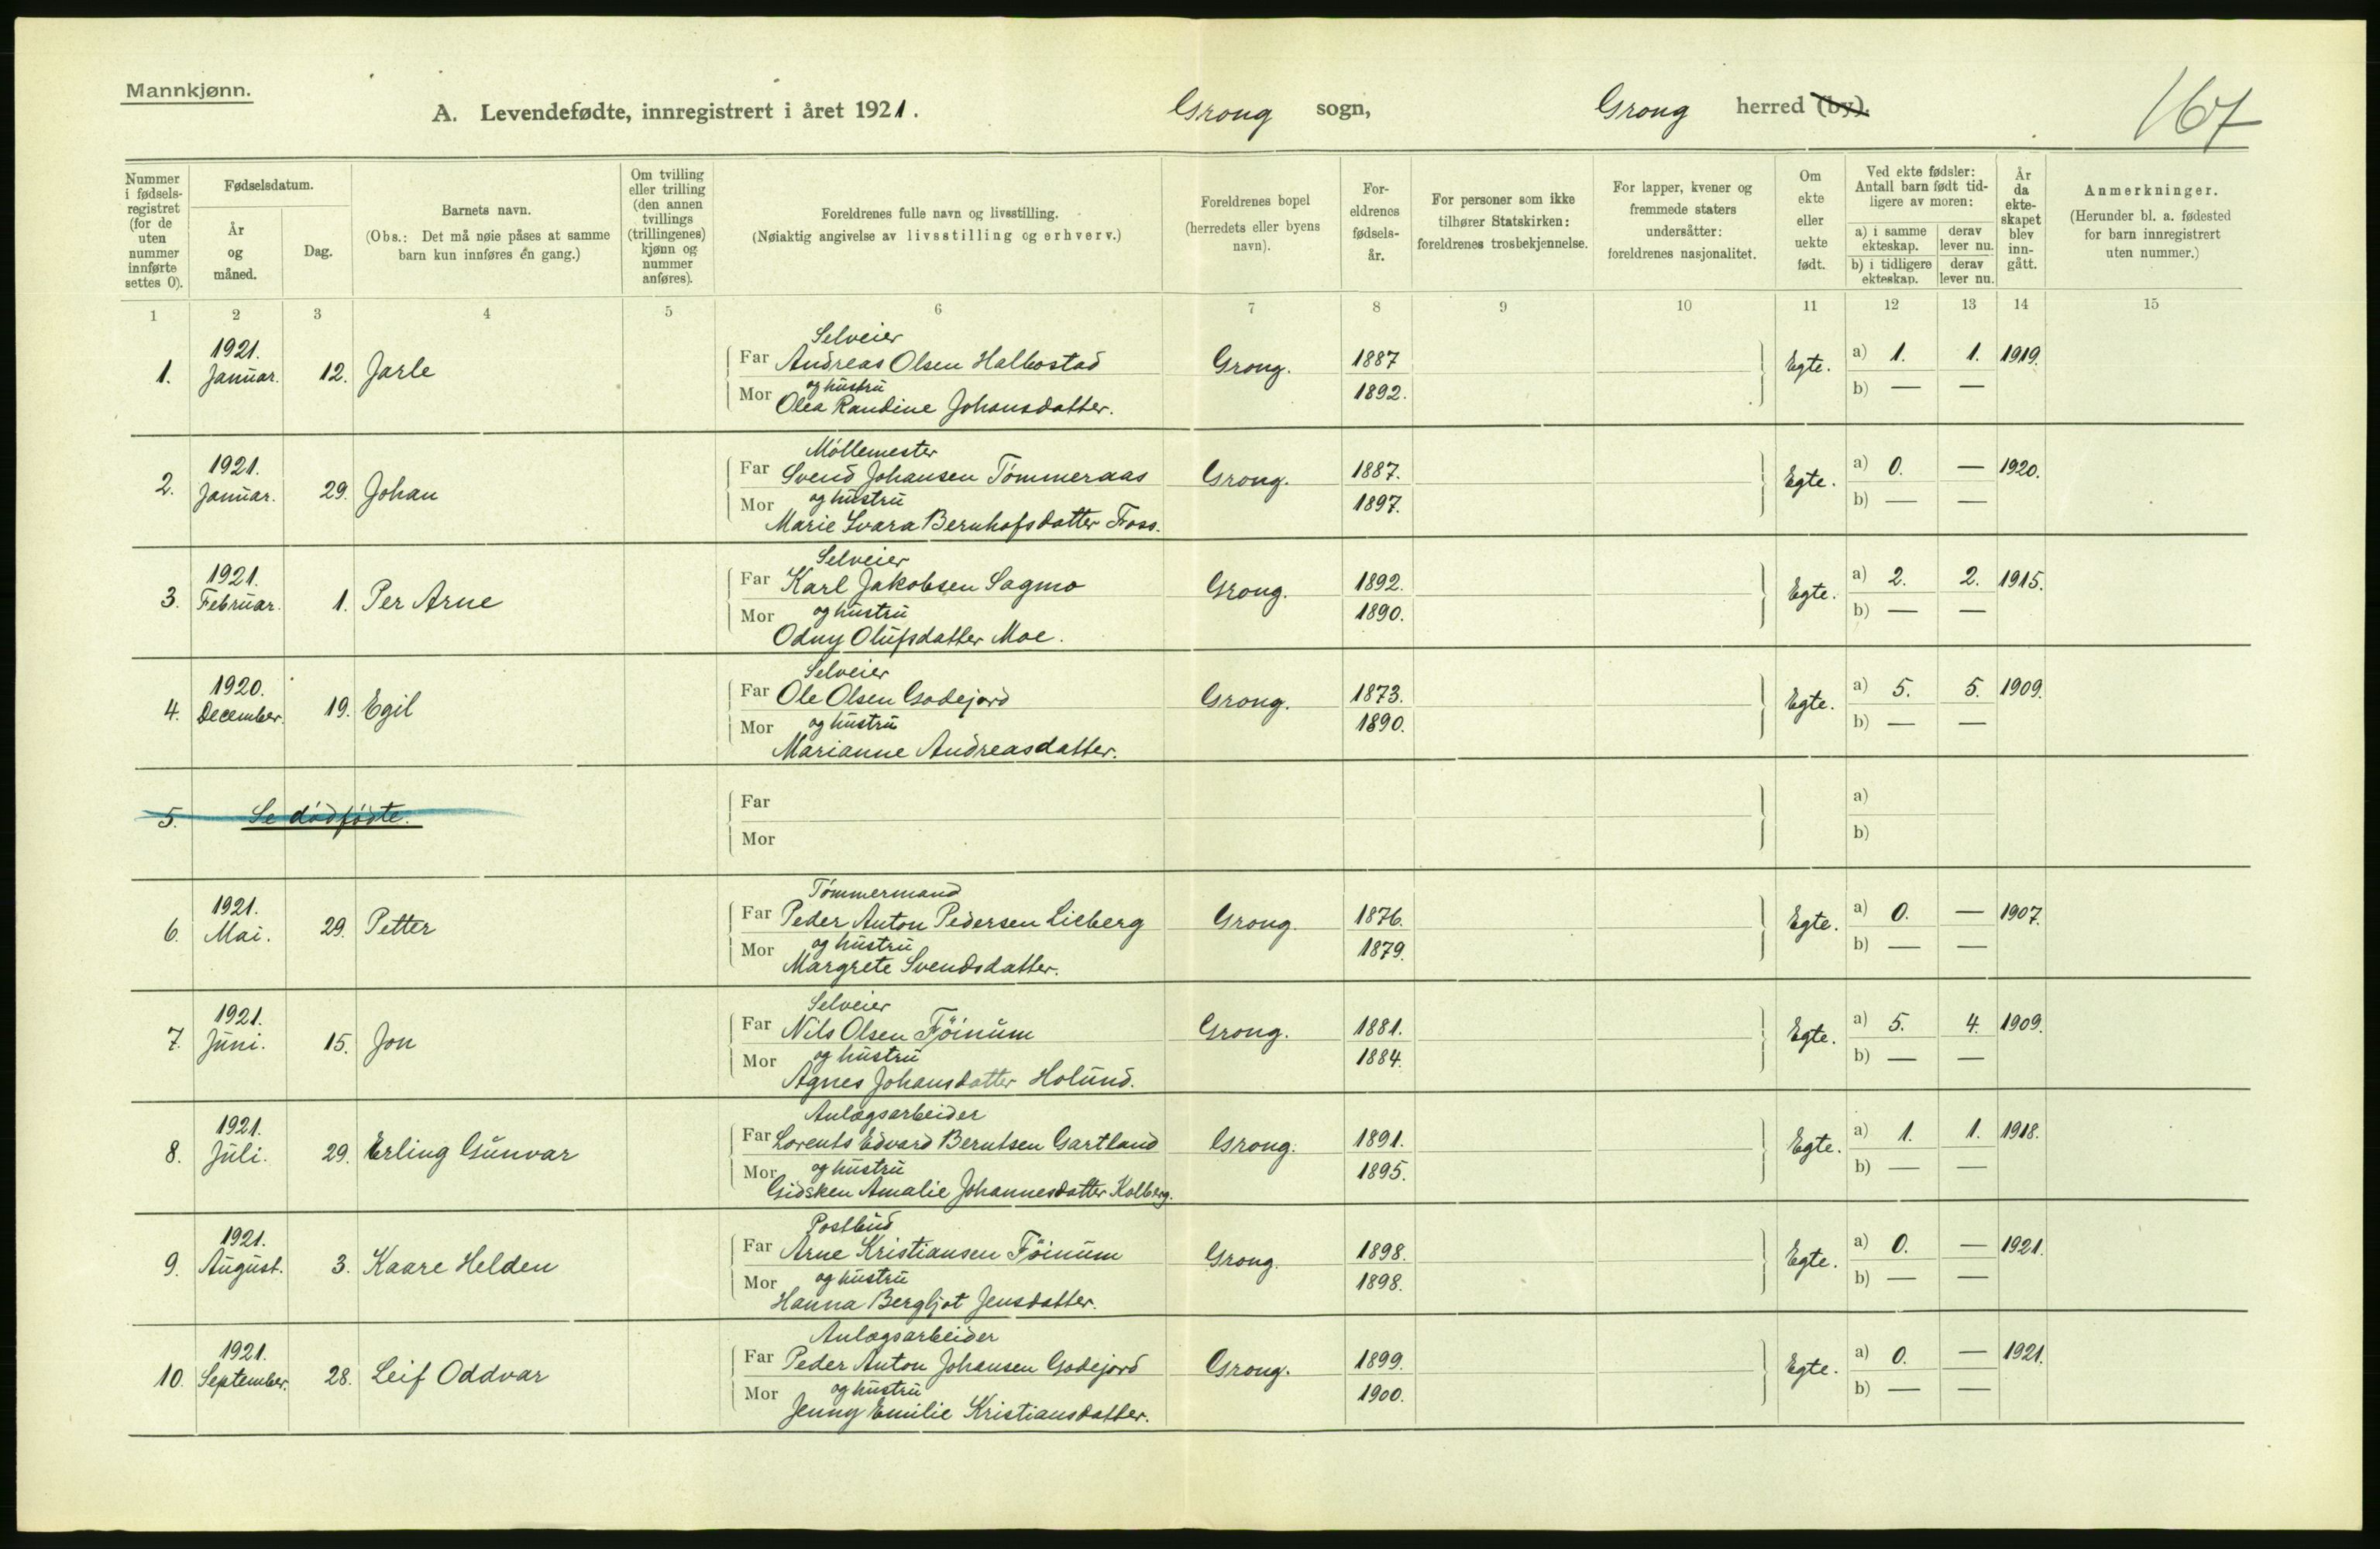 Mannkjønn.
A. Levendefødte, innregistrert i året 1921. Grong sogn, Grong herred (by).
167
Nummer i fødsels-registret (for de uten nummer innførte settes 0).
Fødselsdatum.
År og måned.
Dag.
Barnets navn.
(Obs.: Det må nøie påses at samme barn kun innføres én gang.)
Om tvilling eller trilling (den annen tvillings (trillingenes) kjønn og nummer anføres).
Foreldrenes fulle navn og livsstilling.
(Nøiaktig angivelse av livsstilling og erhverv.)
Foreldrenes bopel (herredets eller byens navn).
For-eldrenes fødsels-år.
For personer som ikke tilhører Statskirken: foreldrenes trosbekjennelse.
For lapper, kvener og fremmede staters undersåtter: foreldrenes nasjonalitet.
Om ekte eller uekte født.
Ved ekte fødsler: Antall barn født tid-ligere av moren:
a) i samme ekteskap. derav lever nu.
b) i tidligere ekteskap. derav lever nu.
År da ekte-skapet blev inn-gått.
Anmerkninger.
(Herunder bl. a. fødested for barn innregistrert uten nummer.)
1 2 3 4 5 6 7 8 9 10 11 12 13 14 15
Selveier
1. 1921. Januar. 12. Jarle Far Andreas Olsen Halbostad Grong. 1887 Egte. a) 1. 1. 1919.
og hustru
Mor Olea Randine Johansdatter. 1892. b) — —
Møllemester
2. 1921. Januar. 29. Johan Far Svend Johansen Tømmeraas Grong. 1887. Egte. a) 0. — 1920.
og hustru
Mor Marie Svara Bernhofsdatter Foss. 1897. b) — —
Selveier
3. 1921. Februar. 1. Per Arne Far Karl Jakobsen Sagmo Grong. 1892. Egte. a) 2. 2. 1915.
og hustru
Mor Odny Olufsdatter Moe. 1890. b) — —
Selveier
4. 1920. December. 19. Egil Far Ole Olsen Godejord Grong. 1873. Egte. a) 5. 5. 1909.
og hustru
Mor Marianne Andreasdatter. 1890. b) — —
5. Se dødfødte. Far a)
Mor b)
Tømmermand
6. 1921. Mai. 29. Petter Far Peder Anton Pedersen Lieberg Grong. 1876. Egte. a) 0. — 1907.
og hustru
Mor Margrete Svendsdatter. 1879. b) — —
Selveier
7. 1921. Juni. 15. Jon Far Nils Olsen Føinum Grong. 1881. Egte. a) 5. 4. 1909.
og hustru
Mor Agnes Johansdatter Holund. 1884. b) — —
Anlægsarbeider
8. 1921. Juli. 29. Erling Gunvar Far Lorents Edvard Berntsen Gartland Grong. 1891. Egte. a) 1. 1. 1918.
og hustru
Mor Gidsken Amalie Johannesdatter Kolberg. 1895. b) — —
Postbud
9. 1921. August. 3. Kaare Helden Far Arne Kristiansen Føinum Grong. 1898. Egte. a) 0. — 1921.
og hustru
Mor Hanna Bergljot Jensdatter. 1898. b) — —
Anlægsarbeider
10. 1921. September. 28. Leif Oddvar Far Peder Anton Johansen Godejord Grong. 1899. Egte. a) 0. — 1921.
og hustru
Mor Jenny Emilie Kristiansdatter. 1900. b) — —